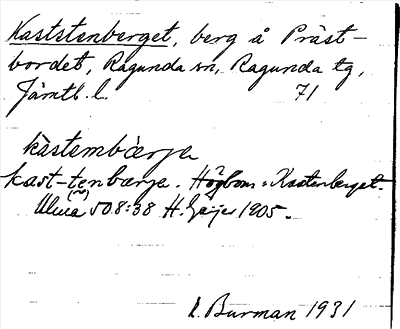 Kaststenberget, berg å Präst-
bordet, Ragunda sn, Ragunda tg,
Jämtl. l. 71
kàstembæ̀rja
kast-tenbærja. Högbom: Kastenberget.
508:38 H. Geijer 1905.
E. Burman 1931